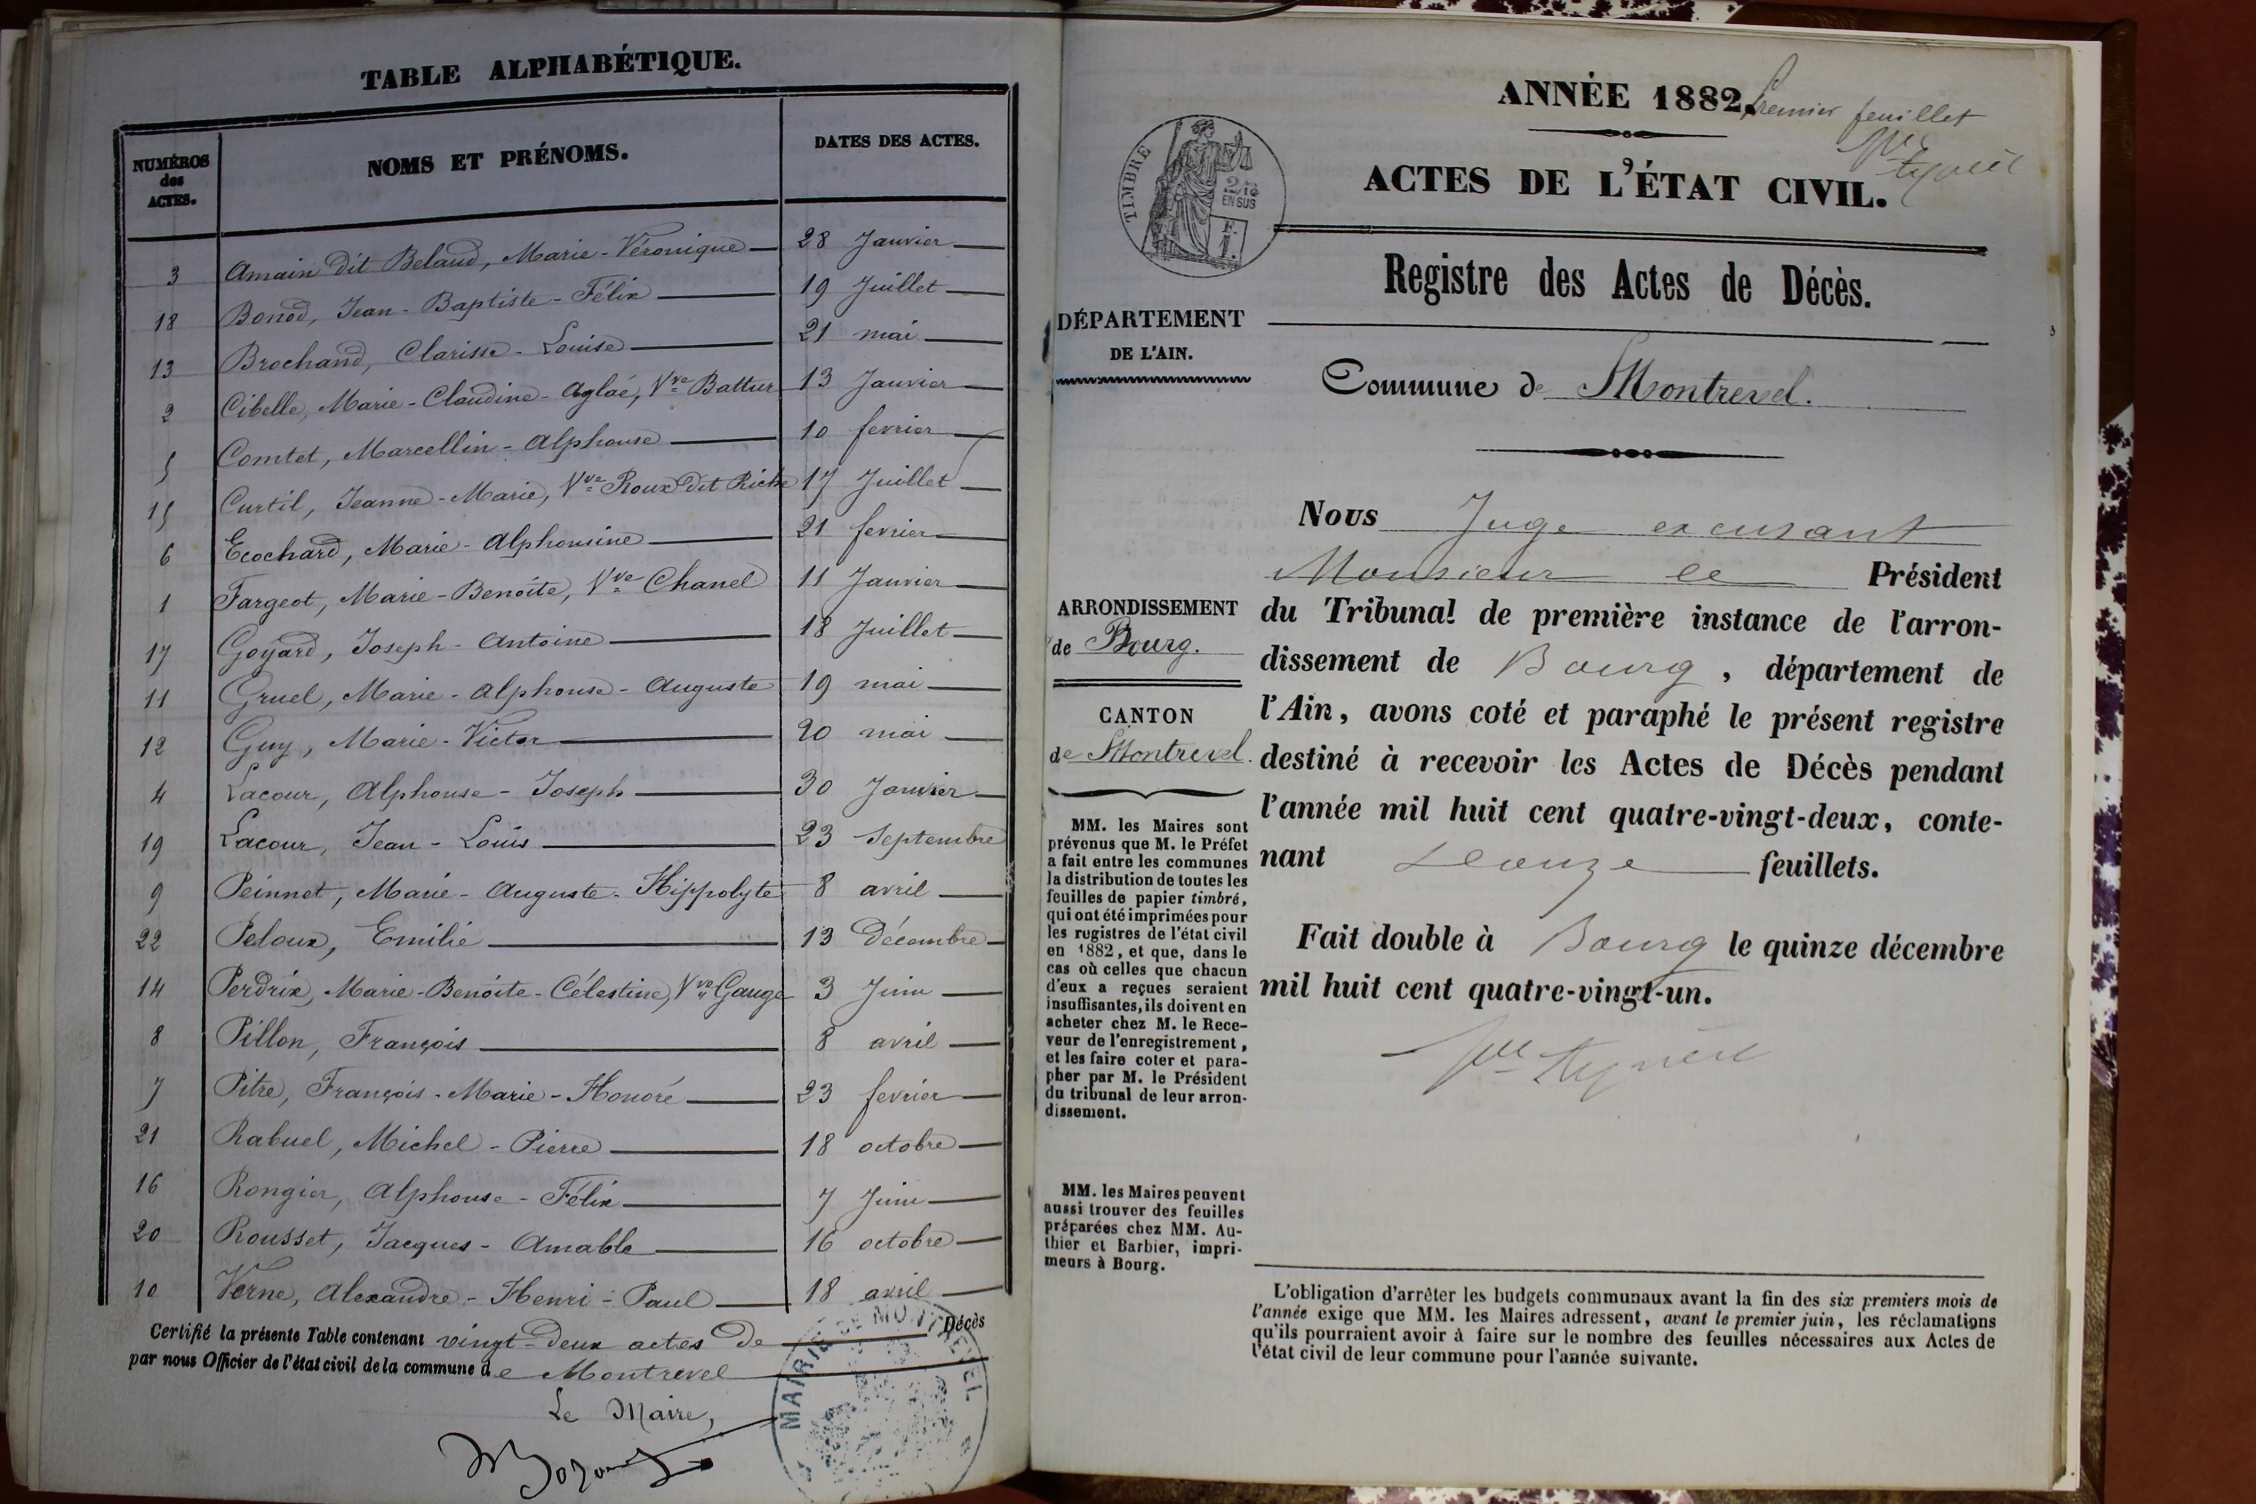 TABLE ALPHABÉTIQUE.
NUMÉROS des ACTES. NOMS ET PRÉNOMS. DATES DES ACTES.
3 Amain dit Belaud, Marie-Véronique 28 Janvier
18 Bonod, Jean-Baptiste-Félix 19 Juillet
13 Brochand, Clarisse-Louise 21 mai
2 Cibelle, Marie-Claudine-Aglaé, Vve Battur 13 Janvier
5 Comtet, Marcellin-Alphonse 10 fevrier
15 Curtil, Jeanne-Marie, Vve Roux dit Riche 17 Juillet
6 Ecochard, Marie-Alphonsine 21 fevrier
1 Fargeot, Marie-Benoîte, Vve Chanel 11 Janvier
17 Goyard, Joseph-Antoine 18 Juillet
11 Gruel, Marie-Alphonse-Auguste 19 mai
12 Guy, Marie-Victor 20 mai
4 Lacour, Alphonse-Joseph 30 Janvier
19 Lacour, Jean-Louis 23 Septembre
9 Peinnet, Marie-Auguste-Hippolyte 8 avril
22 Peloux, Emilie 13 Décembre
14 Perdrix, Marie-Benoite-Célestine, Vve Gauge 3 Juin
8 Pillon, François 8 avril
7 Pitre, François-Marie-Honoré 23 fevrier
21 Rabuel, Michel-Pierre 18 octobre
16 Rongier, Alphonse-Félix 7 Juin
20 Rousset, Jacques-Amable 16 octobre
10 Verne, Alexandre-Henri-Paul 18 avril
Certifié la présente Table contenant vingt-deux actes de Décès
par nous Officier de l'état civil de la commune de Montrevel
Le Maire,
MAIRIE DE MONTREVEL
ANNÉE 1882.
Premier feuillet
ACTES DE L'ÉTAT CIVIL.
TIMBRE
2/10 EN SUS
F. 1.
Registre des Actes de Décès.
DÉPARTEMENT
DE L'AIN.
Commune de Montrevel.
ARRONDISSEMENT
de Bourg.
CANTON
de Montrevel.
MM. les Maires sont
prévenus que M. le Préfet
a fait entre les communes
la distribution de toutes les
feuilles de papier timbré,
qui ont été imprimées pour
les registres de l'état civil
en 1882, et que, dans le
cas où celles que chacun
d'eux a reçues seraient
insuffisantes, ils doivent en
acheter chez M. le Rece-
veur de l'enregistrement,
et les faire coter et para-
pher par M. le Président
du tribunal de leur arron-
dissement.
MM. les Maires peuvent
aussi trouver des feuilles
préparées chez MM. Au-
thier et Barbier, impri-
meurs à Bourg.
Nous Juge excusant
Monsieur le Président
du Tribunal de première instance de l'arron-
dissement de Bourg, département de
l'Ain, avons coté et paraphé le présent registre
destiné à recevoir les Actes de Décès pendant
l'année mil huit cent quatre-vingt-deux, conte-
nant douze feuillets.
Fait double à Bourg le quinze décembre
mil huit cent quatre-vingt-un.
L'obligation d'arrêter les budgets communaux avant la fin des six premiers mois de
l'année exige que MM. les Maires adressent, avant le premier juin, les réclamations
qu'ils pourraient avoir à faire sur le nombre des feuilles nécessaires aux Actes de
l'état civil de leur commune pour l'année suivante.